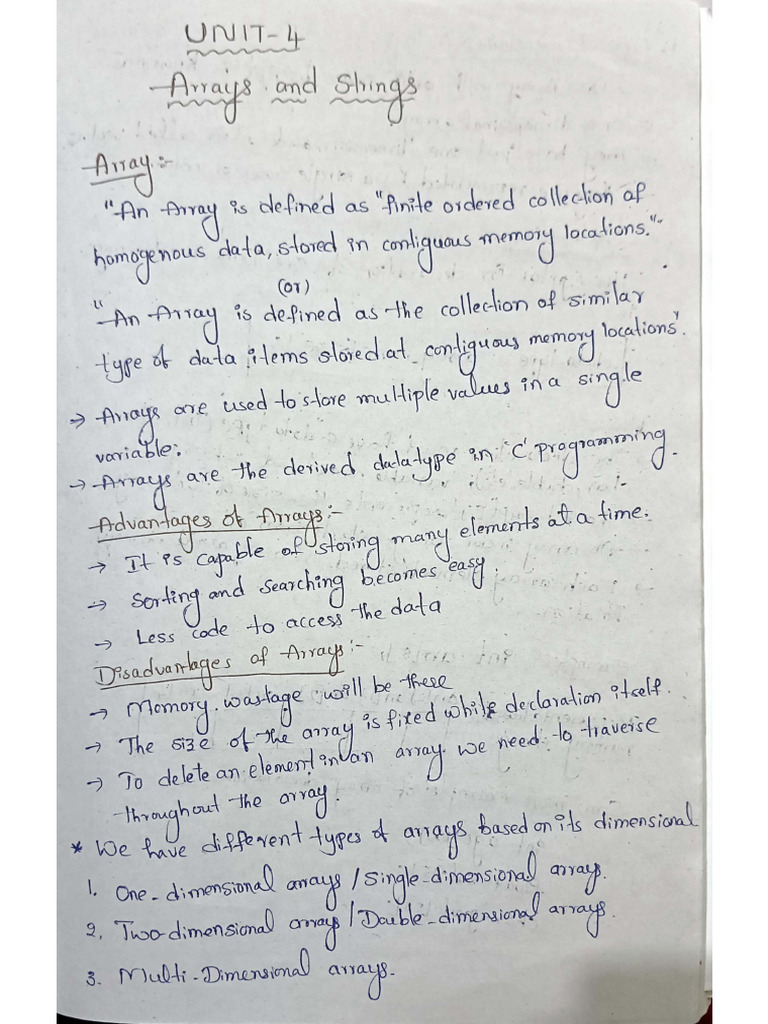 UNIT-4
Arrays and Strings
Array:-
"An Array is defined as "finite ordered collection of
homogenous data, stored in contiguous memory locations."
(or)
"An Array is defined as the collection of similar
type of data items stored at contiguous memory locations".
→ Arrays are used to store multiple values in a single
variable.
→ Arrays are the derived datatype in 'C' programming.
Advantages of Arrays:-
→ It is capable of storing many elements at a time.
→ Sorting and searching becomes easy.
→ Less code to access the data
Disadvantages of Arrays:-
→ Memory wastage will be there
→ The size of the array is fixed while declaration itself.
→ To delete an element in an array we need to traverse
throughout the array.
* We have different types of arrays based on its dimensional
1. One-dimensional arrays / Single-dimensional arrays.
2. Two-dimensional arrays / Double-dimensional arrays.
3. Multi-Dimensional arrays.